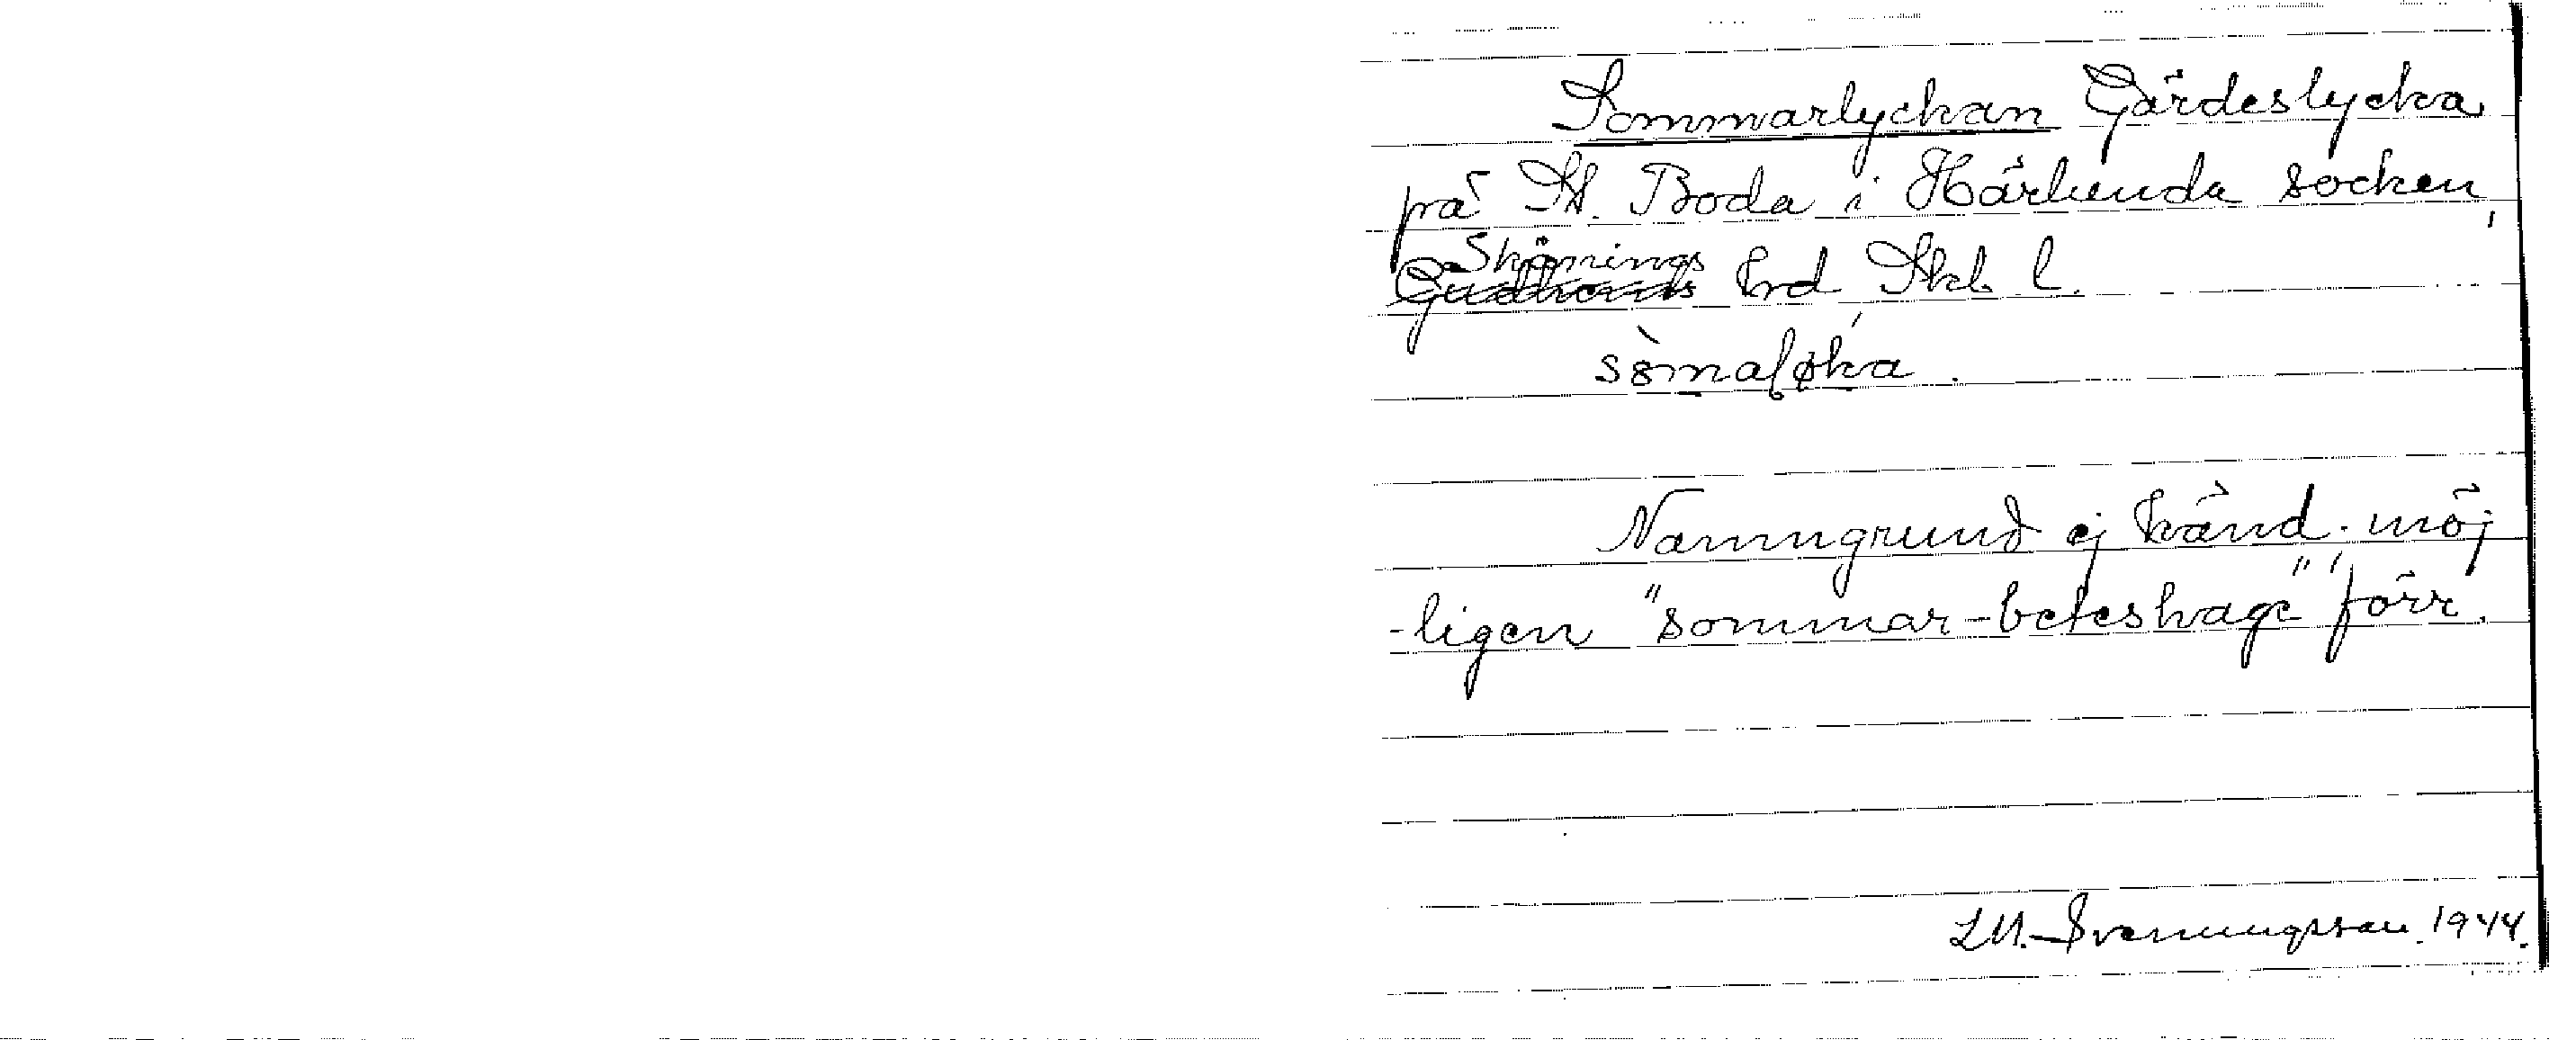 Sommarlyckan Gärdeslycka
på St. Boda i Härlunda socken,
Skånings
Gudhems hrd Skb l.
sòmaløka.
Namngrund ej känd. möj
-ligen "sommar-beteshage", förr.
LM. Svenungsson 1944.